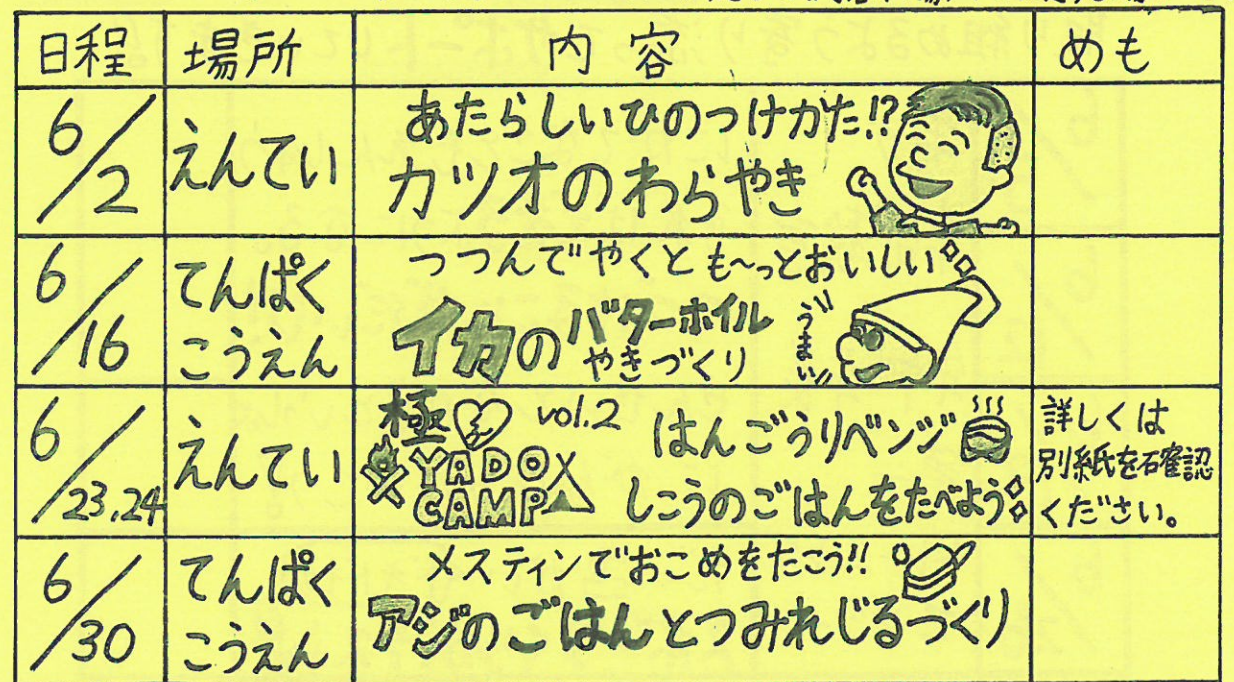 日程 場所 内容 めも
6/2 えんてい あたらしいひのつけかた!?
カツオのわらやき
6/16 てんぱく
こうえん
つつんでやくとも〜っとおいしい
イカのバターホイル
やきづくり
うまい!!
6/23,24 えんてい 極 vol.2
YADO
CAMP
はんごうリベンジ
しこうのごはんをたべよう
詳しくは
別紙を確認
ください。
6/30 てんぱく
こうえん
メスティンでおこめをたこう!!
アジのごはんとつみれじるづくり